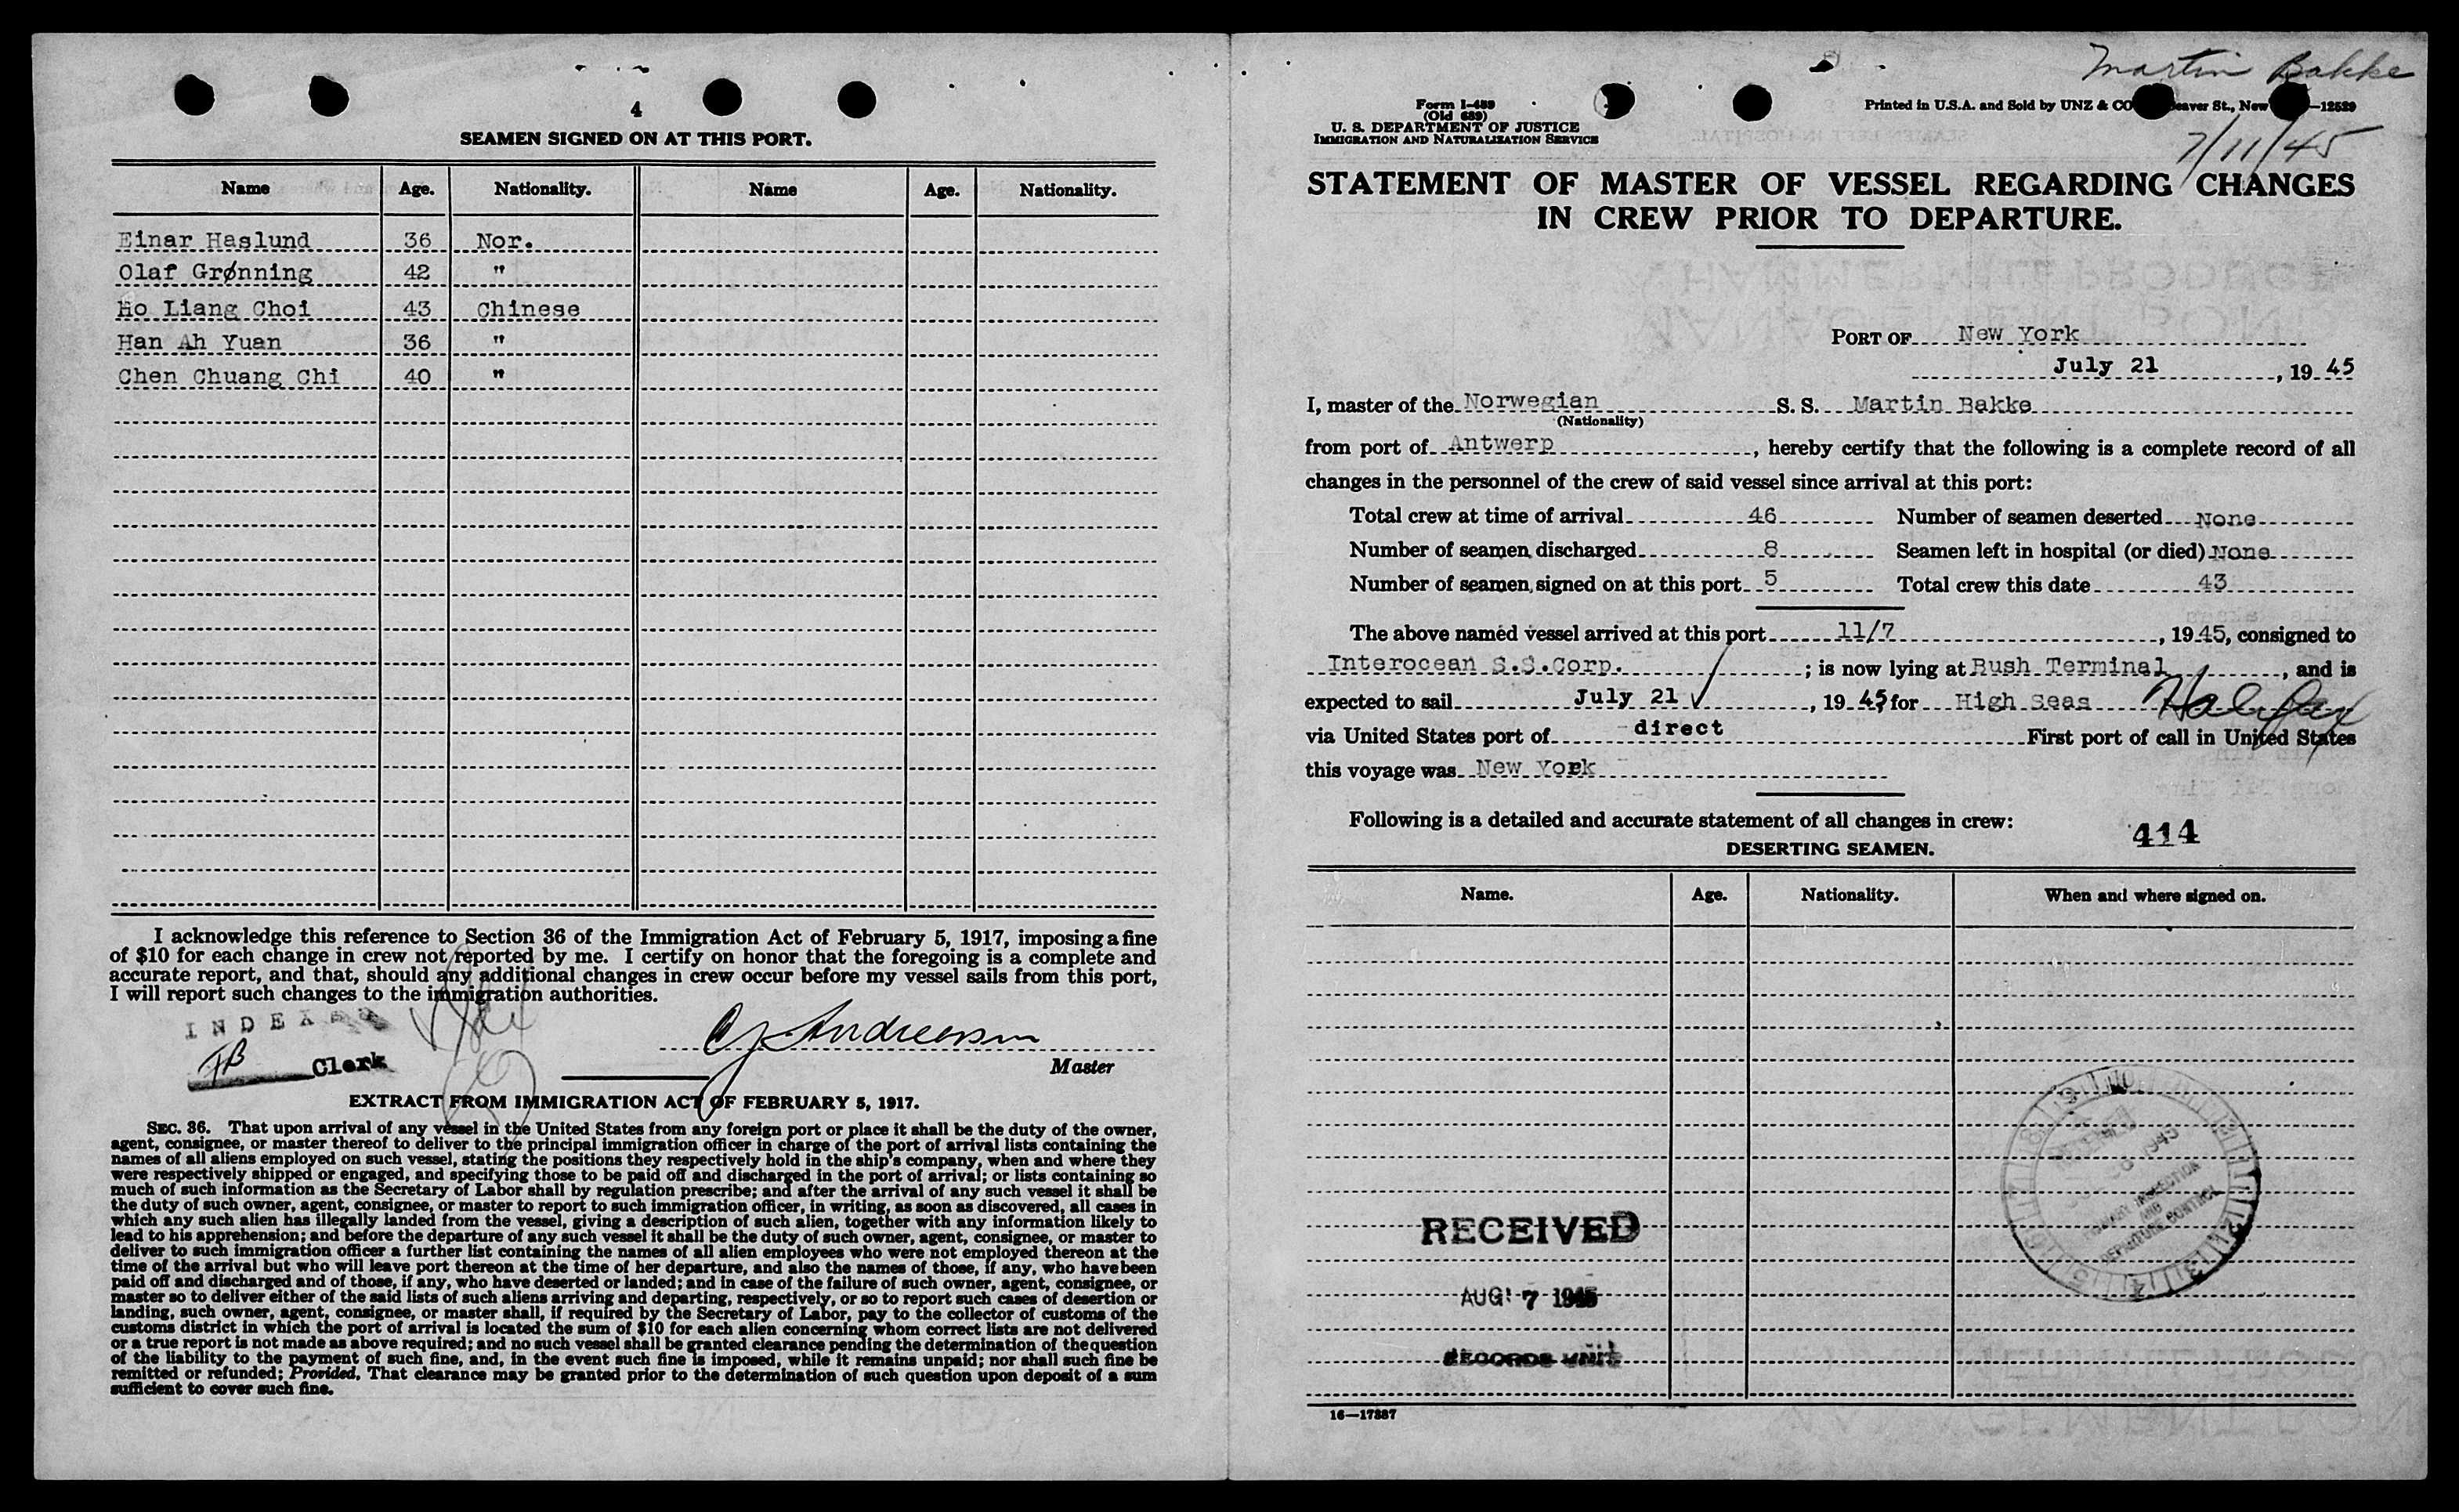 4
SEAMEN SIGNED ON AT THIS PORT.
Name Age. Nationality. Name Age. Nationality.
Einar Haslund 36 Nor.
Olaf Grønning 42 "
Ho Liang Choi 43 Chinese
Han Ah Yuan 36 "
Chen Chuang Chi 40 "
I acknowledge this reference to Section 36 of the Immigration Act of February 5, 1917, imposing a fine
of $10 for each change in crew not reported by me. I certify on honor that the foregoing is a complete and
accurate report, and that, should any additional changes in crew occur before my vessel sails from this port,
I will report such changes to the immigration authorities.
INDEXED
Clerk
Andreassen
Master
EXTRACT FROM IMMIGRATION ACT OF FEBRUARY 5, 1917.
SEC. 36. That upon arrival of any vessel in the United States from any foreign port or place it shall be the duty of the owner,
agent, consignee, or master thereof to deliver to the principal immigration officer in charge of the port of arrival lists containing the
names of all aliens employed on such vessel, stating the positions they respectively hold in the ship's company, when and where they
were respectively shipped or engaged, and specifying those to be paid off and discharged in the port of arrival; or lists containing so
much of such information as the Secretary of Labor shall by regulation prescribe; and after the arrival of any such vessel it shall be
the duty of such owner, agent, consignee, or master to report to such immigration officer, in writing, as soon as discovered, all cases in
which any such alien has illegally landed from the vessel, giving a description of such alien, together with any information likely to
lead to his apprehension; and before the departure of any such vessel it shall be the duty of such owner, agent, consignee, or master to
deliver to such immigration officer a further list containing the names of all alien employees who were not employed thereon at the
time of the arrival but who will leave port thereon at the time of her departure, and also the names of those, if any, who have been
paid off and discharged and of those, if any, who have deserted or landed; and in case of the failure of such owner, agent, consignee, or
master so to deliver either of the said lists of such aliens arriving and departing, respectively, or so to report such cases of desertion or
landing, such owner, agent, consignee, or master shall, if required by the Secretary of Labor, pay to the collector of customs of the
customs district in which the port of arrival is located the sum of $10 for each alien concerning whom correct lists are not delivered
or a true report is not made as above required; and no such vessel shall be granted clearance pending the determination of the question
of the liability to the payment of such fine, and, in the event such fine is imposed, while it remains unpaid; nor shall such fine be
remitted or refunded; Provided, That clearance may be granted prior to the determination of such question upon deposit of a sum
sufficient to cover such fine.
Martin Bakke
Form I-489
(Old 689)
U. S. DEPARTMENT OF JUSTICE
IMMIGRATION AND NATURALIZATION SERVICE
Printed in U.S.A. and Sold by UNZ & CO eaver St., New —12529
7/11/45
STATEMENT OF MASTER OF VESSEL REGARDING CHANGES
IN CREW PRIOR TO DEPARTURE.
PORT OF New York
July 21, 1945
I, master of the Norwegian S. S. Martin Bakke
(Nationality)
from port of Antwerp, hereby certify that the following is a complete record of all
changes in the personnel of the crew of said vessel since arrival at this port:
Total crew at time of arrival 46 Number of seamen deserted None
Number of seamen discharged 8 Seamen left in hospital (or died) None
Number of seamen signed on at this port 5 Total crew this date 43
The above named vessel arrived at this port 11/7, 1945, consigned to
Interocean S.S.Corp. ; is now lying at Bush Terminal, and is
expected to sail July 21, 1945 for High Seas Halifax
via United States port of direct First port of call in United States
this voyage was New York
Following is a detailed and accurate statement of all changes in crew:
414
DESERTING SEAMEN.
Name. Age. Nationality. When and where signed on.
RECEIVED
AUG 7 1945
RECORDS UNIT
DEPARTURE CONTROL
16—17887